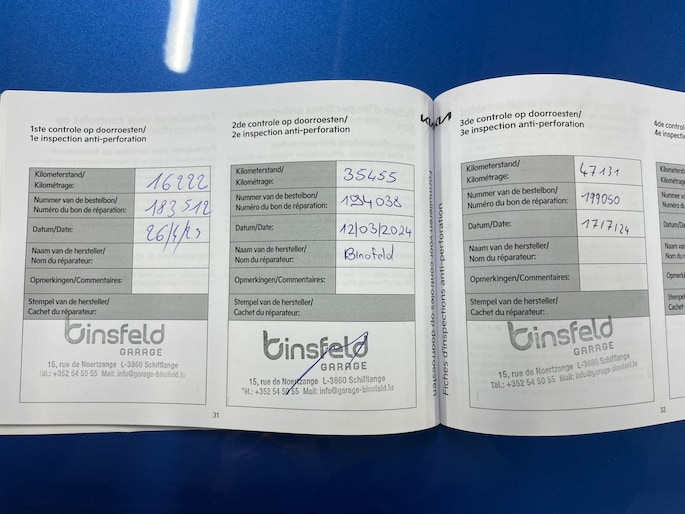 1ste controle op doorroesten/
1e inspection anti-perforation
Kilometerstand/
Kilométrage:
16222
Nummer van de bestelbon/
Numéro du bon de réparation:
183512
Datum/Date:
26/4/23
Naam van de hersteller/
Nom du réparateur:
Opmerkingen/Commentaires:
Stempel van de hersteller/
Cachet du réparateur:
binsfeld
GARAGE
15, rue de Noertzange L-3860 Schifflange
Tél.: +352 54 50 55 Mail: info@garage-binsfeld.lu
31
2de controle op doorroesten/
2e inspection anti-perforation
Kilometerstand/
Kilométrage:
35455
Nummer van de bestelbon/
Numéro du bon de réparation:
194038
Datum/Date:
12/03/2024
Naam van de hersteller/
Nom du réparateur:
Binsfeld
Opmerkingen/Commentaires:
Stempel van de hersteller/
Cachet du réparateur:
binsfeld
GARAGE
15, rue de Noertzange L-3860 Schifflange
Tél.: +352 54 50 55 Mail: info@garage-binsfeld.lu
KIA
Formulieren voor controles op doorroesten
Fiches d'inspections anti-perforation
3de controle op doorroesten/
3e inspection anti-perforation
Kilometerstand/
Kilométrage:
47131
Nummer van de bestelbon/
Numéro du bon de réparation:
199050
Datum/Date:
17/7/24
Naam van de hersteller/
Nom du réparateur:
Opmerkingen/Commentaires:
Stempel van de hersteller/
Cachet du réparateur:
binsfeld
GARAGE
15, rue de Noertzange L-3860 Schifflange
Tél.: +352 54 50 55 Mail: info@garage-binsfeld.lu
32
4de
4e